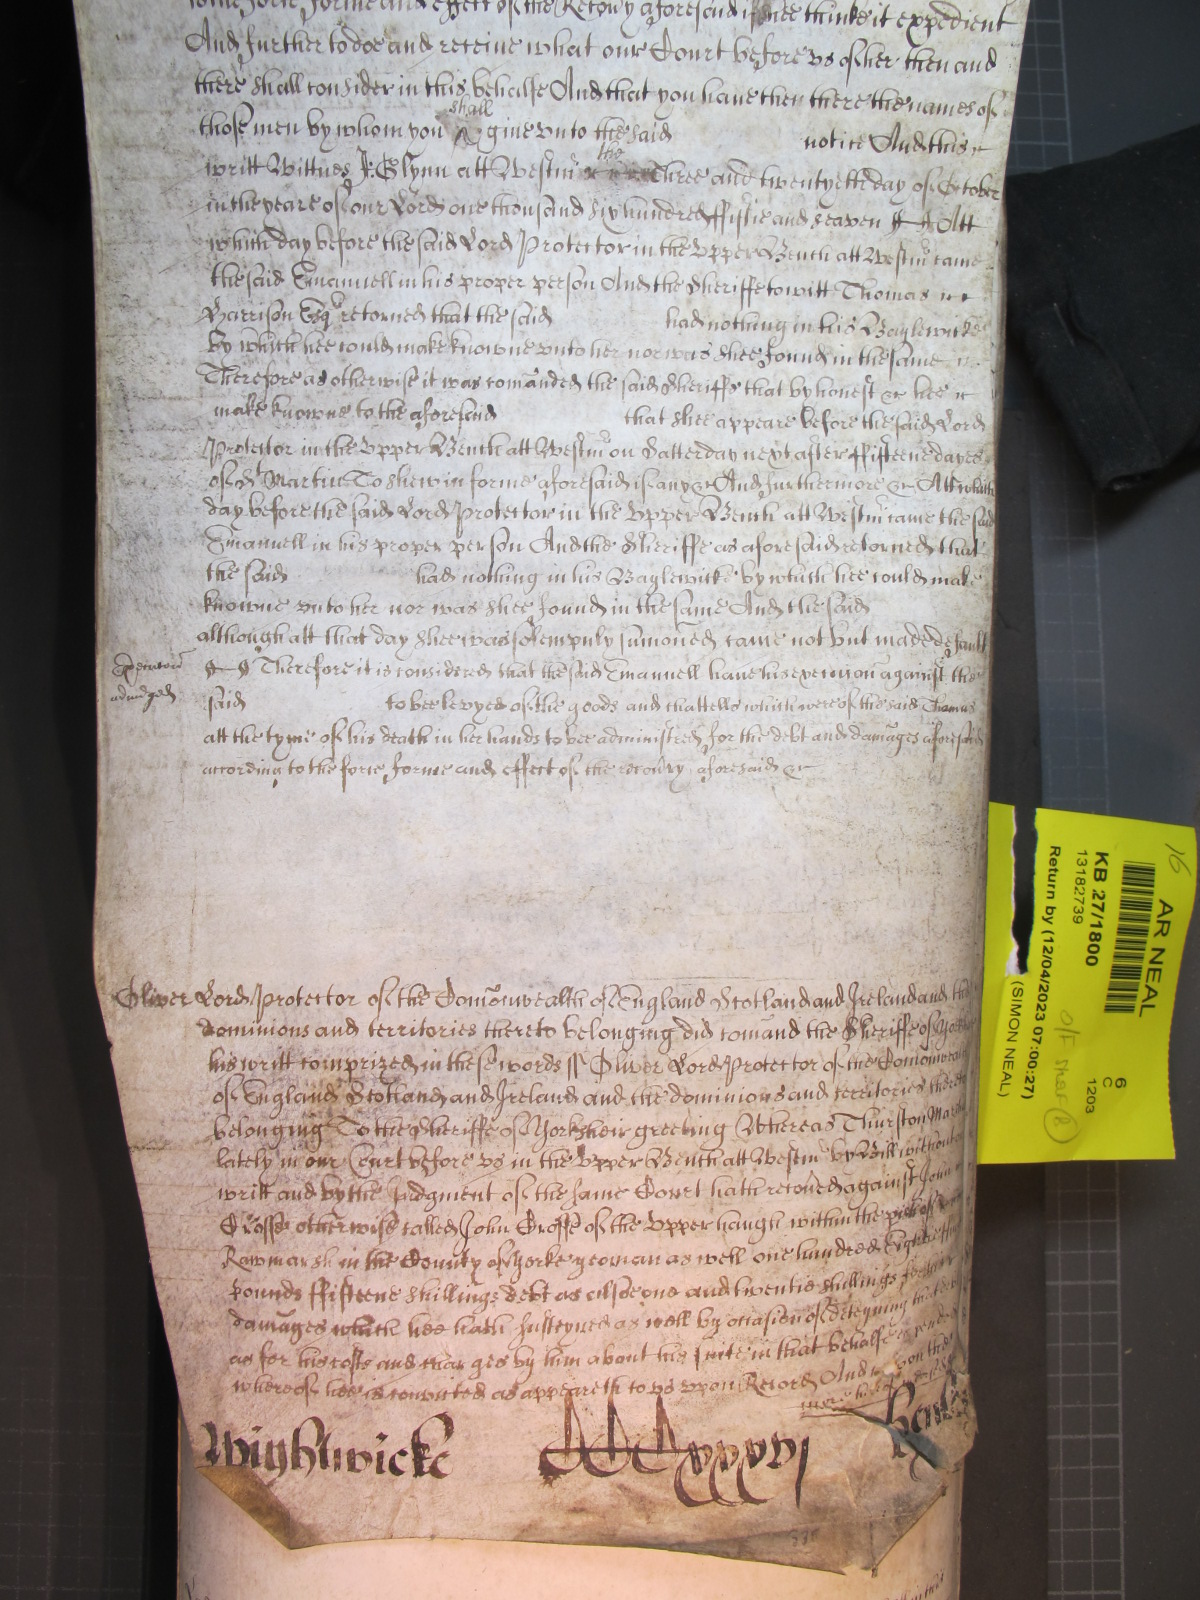 forme and effect of the Recovy aforesaid if shee thinke it expedient
And further to doe and receive what our Court before us of her then and
there shall consider in this behalfe And that you have then there the names of
shall
those men by whom you give unto the said notice And this
the
writt Wittnes J: Glynn att Westm Three and twentyeth day of October
in the yeare of our Lord one thousand six hundred ffiftie and seaven Att
which day before the said Lord Protector in the Upper Bench att Westm came
the said Emanuell in his proper person And the Sheriffe to witt Thomas
Harrison Esq retorned that the said had nothing in his Baylewicke
by which hee could make knowne unto her nor was shee found in the same
Therefore as otherwise it was comanded the said Sheriffe that by honest &c hee
make knowne to the aforesaid that shee appeare before the said Lord
Protector in the Upper Bench att Westm on Satterday next after ffifteene dayes
of St Martin To shew in forme aforesaid if any &c And furthermore &c Att which
day before the said Lord Protector in the Upper Bench att Westm came the said
Emanuell in his proper person And the Sheriffe as aforesaid retorned that
the said had nothing in his Baylewicke by which hee could make
knowne unto her nor was shee found in the same And the said
although att that day shee was solempnly sumoned came not but made default
Therefore it is considered that the said Emanuell have his execucon against the
adiudged
said to bee levyed of the goods and chattells which were of the said Thomas
att the tyme of his death in her hands to bee administred for the debt and damages aforesaid
according to the force forme and effect of the recovy aforesaid &c
Oliver Lord Protector of the Comonwealth of England Scotland and Ireland and the
dominions and territories thereto belonging did comand the Sheriffe of
his writt comprized in these words ss Oliver Lord Protector of the Comonwealth
of England Scotland and Ireland and the dominions and territories thereto
belonging To the Sheriffe of Yorksheir greeting Whereas Thurston
lately in our Court before us in the Upper Bench att Westm by Bill without
writt and by the Judgment of the same Court hath recoved against John
Crosse otherwise called John Crosse of the Upper haugh within the pish of
Rawmarsh in the County of Yorke yeoman as well one hundred
pounds ffifteene shillings debt as alsoe one and twentie shillings
damages which hee hath susteyned as well by occasion of deteyning
as for his costs and charges by him about his suite in that behalfe
whereof hee is convicted as appeareth to us upon Record And
Wightwicke
AR NEAL
KB 27/1800
13182739
Return by (12/04/2023 07:00:27)
(SIMON NEAL)
6
C
1203
16